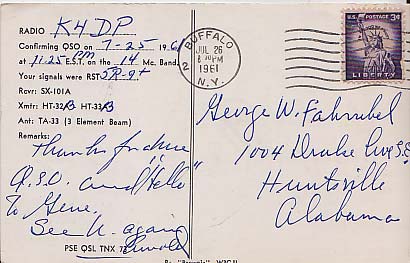 RADIO K4DP
Confirming QSO on 7-25 1961
at 11:25 PM E.S.T. on the 14 Mc. Band.
Your signals were RST 5R-9+
Rcvr: SX-101A
Xmtr: HT-32B HT-33B
Ant: TA-33 (3 Element Beam)
Remarks:
Thanks for fine
Q.S.O. and "Hello"
To Gene.
See U. again
PSE QSL TNX 73
BUFFALO
2
JUL 26
PM
1961
N.Y.
U.S. POSTAGE
3¢
LIBERTY
George W. Fahrubel
1004 Drake Ave S.E.
Huntsville
Alabama